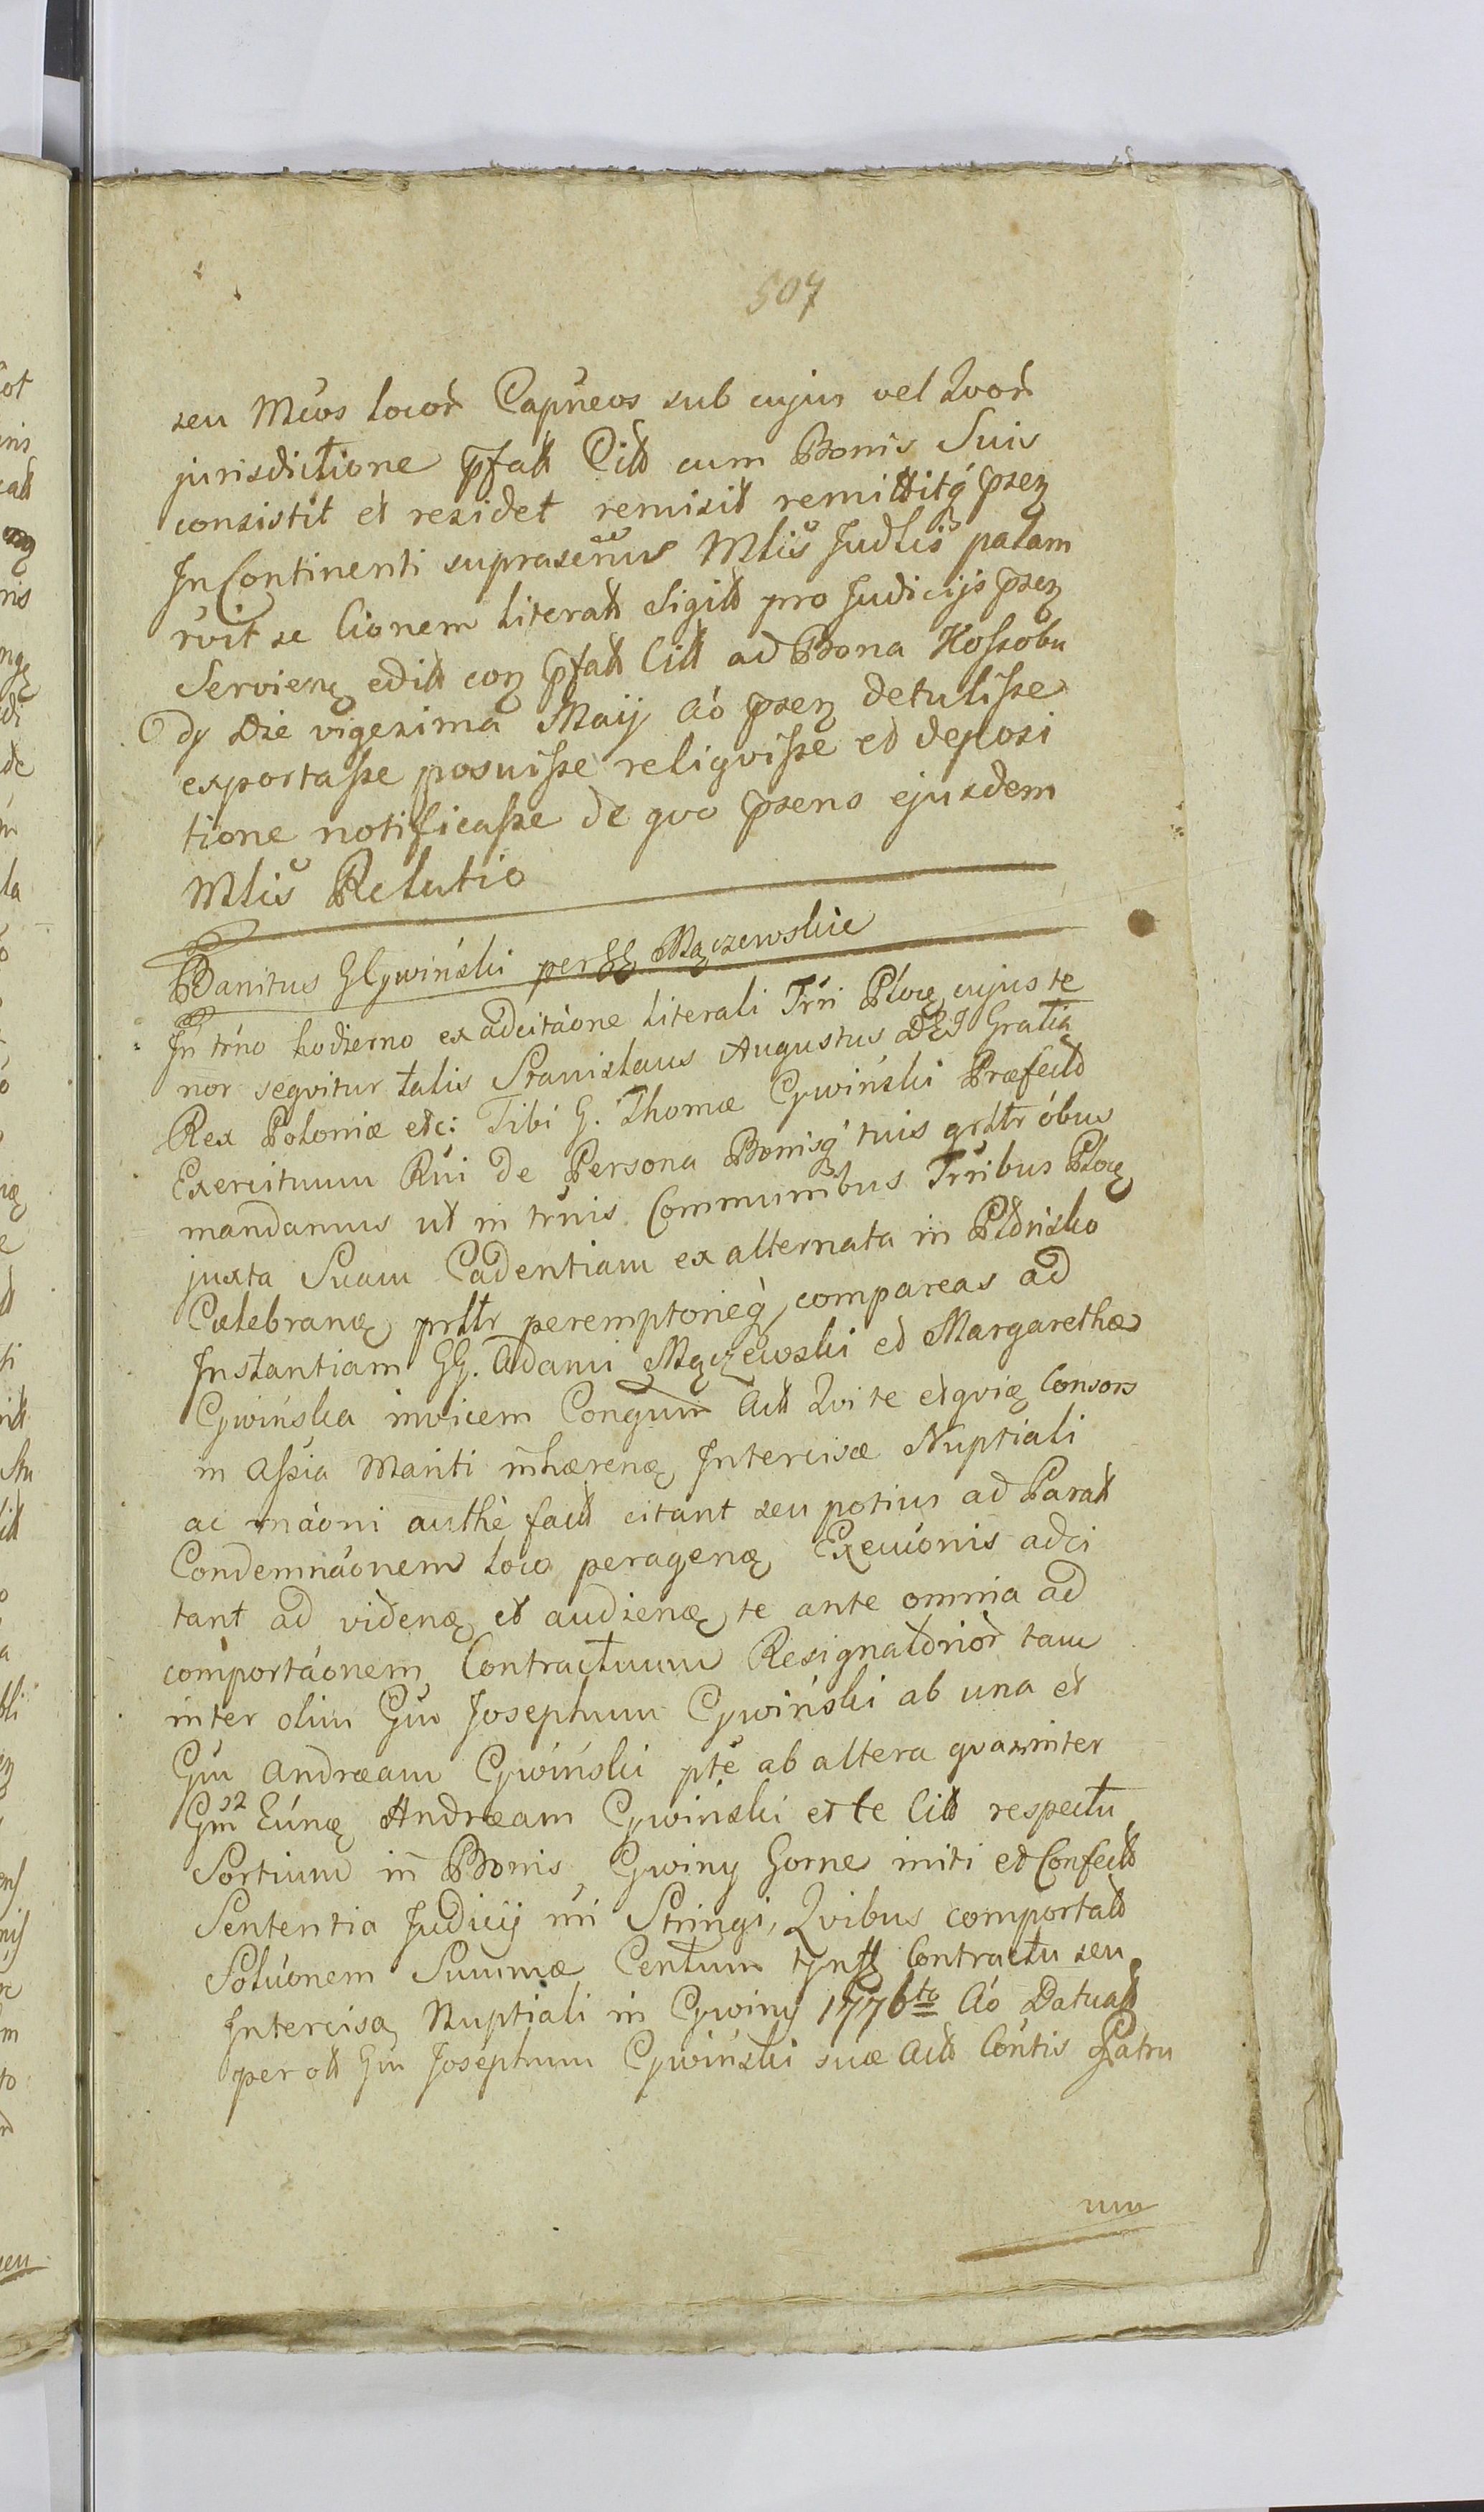 507
seu Mcus locor̃ Capũeos sub cujus vel Qvor̃
jurisdictione p̃fatt Citt cum Bonis Suis
consistit et residet remisit remittitq́ p̃sen
In Continenti suprasẽnus Mlis Judlis palam
rvit se Cionem literatt Sigitt pro Judicijs p̃sen
Servien editt con p̃fatt Citt ad Bona Kossobu
dy Die vigesima Maij Aó p̃sen detulisse
exportasse posuisse reliqvisse et deposi
tione notificasse de qvo p̃sens ejusdem
Mlis Relatio
Banitus G Cywiński per GG Mączewskie
In trńo hodierno ex adcitáone literali Trri Ploc cujus te
nor seqvitur talis Stanislaus Augustus DEI Gratia
Rex Poloniæ etc: Tibi G. Thomæ Cywiński Præfectt
Exercituum Rñi de Persona Bonisq́ tuis grltr óbus
mandamus ut in trñis Communibus Trribus Ploc
juxta Suam Cadentiam ex alternata in Płońsko
Celebran prltr peremptorieq́ compareas ad
Instantiam GG. Adami Mączewski et Margarethæ
Cywińska invicem Congum̃ Actt Qvi te et qvia Consors
in Assia Mariti inhæren Intercisæ Nuptiali
ac ináoni authe factt citant seu potius ad Paratt
Condemnáonem loco peragen Execuónis adci
tant ad viden et audien te ante omnia ad
comportáonem Contractuum Resignatorior̃ tam
inter olim Gm̃ Josephum Cywiński ab una et
Gm̃ Andræam Cywiński pte ab altera qvam inter
Gm̃ Eún Andræam Cywiński et te Citt respectu
Sortium in Bonis Cywiny Gorne initi et Confectt
Sententia Judicij nri Stringi, Qvibus comportatt
Solúonem Summæ Centum tynff Contractu seu
Intercisa Nuptiali in Cywiny 1776to Aó Datuatt
per ott Gm̃ Josephum Cywiński suæ Actt Contis Patru
um